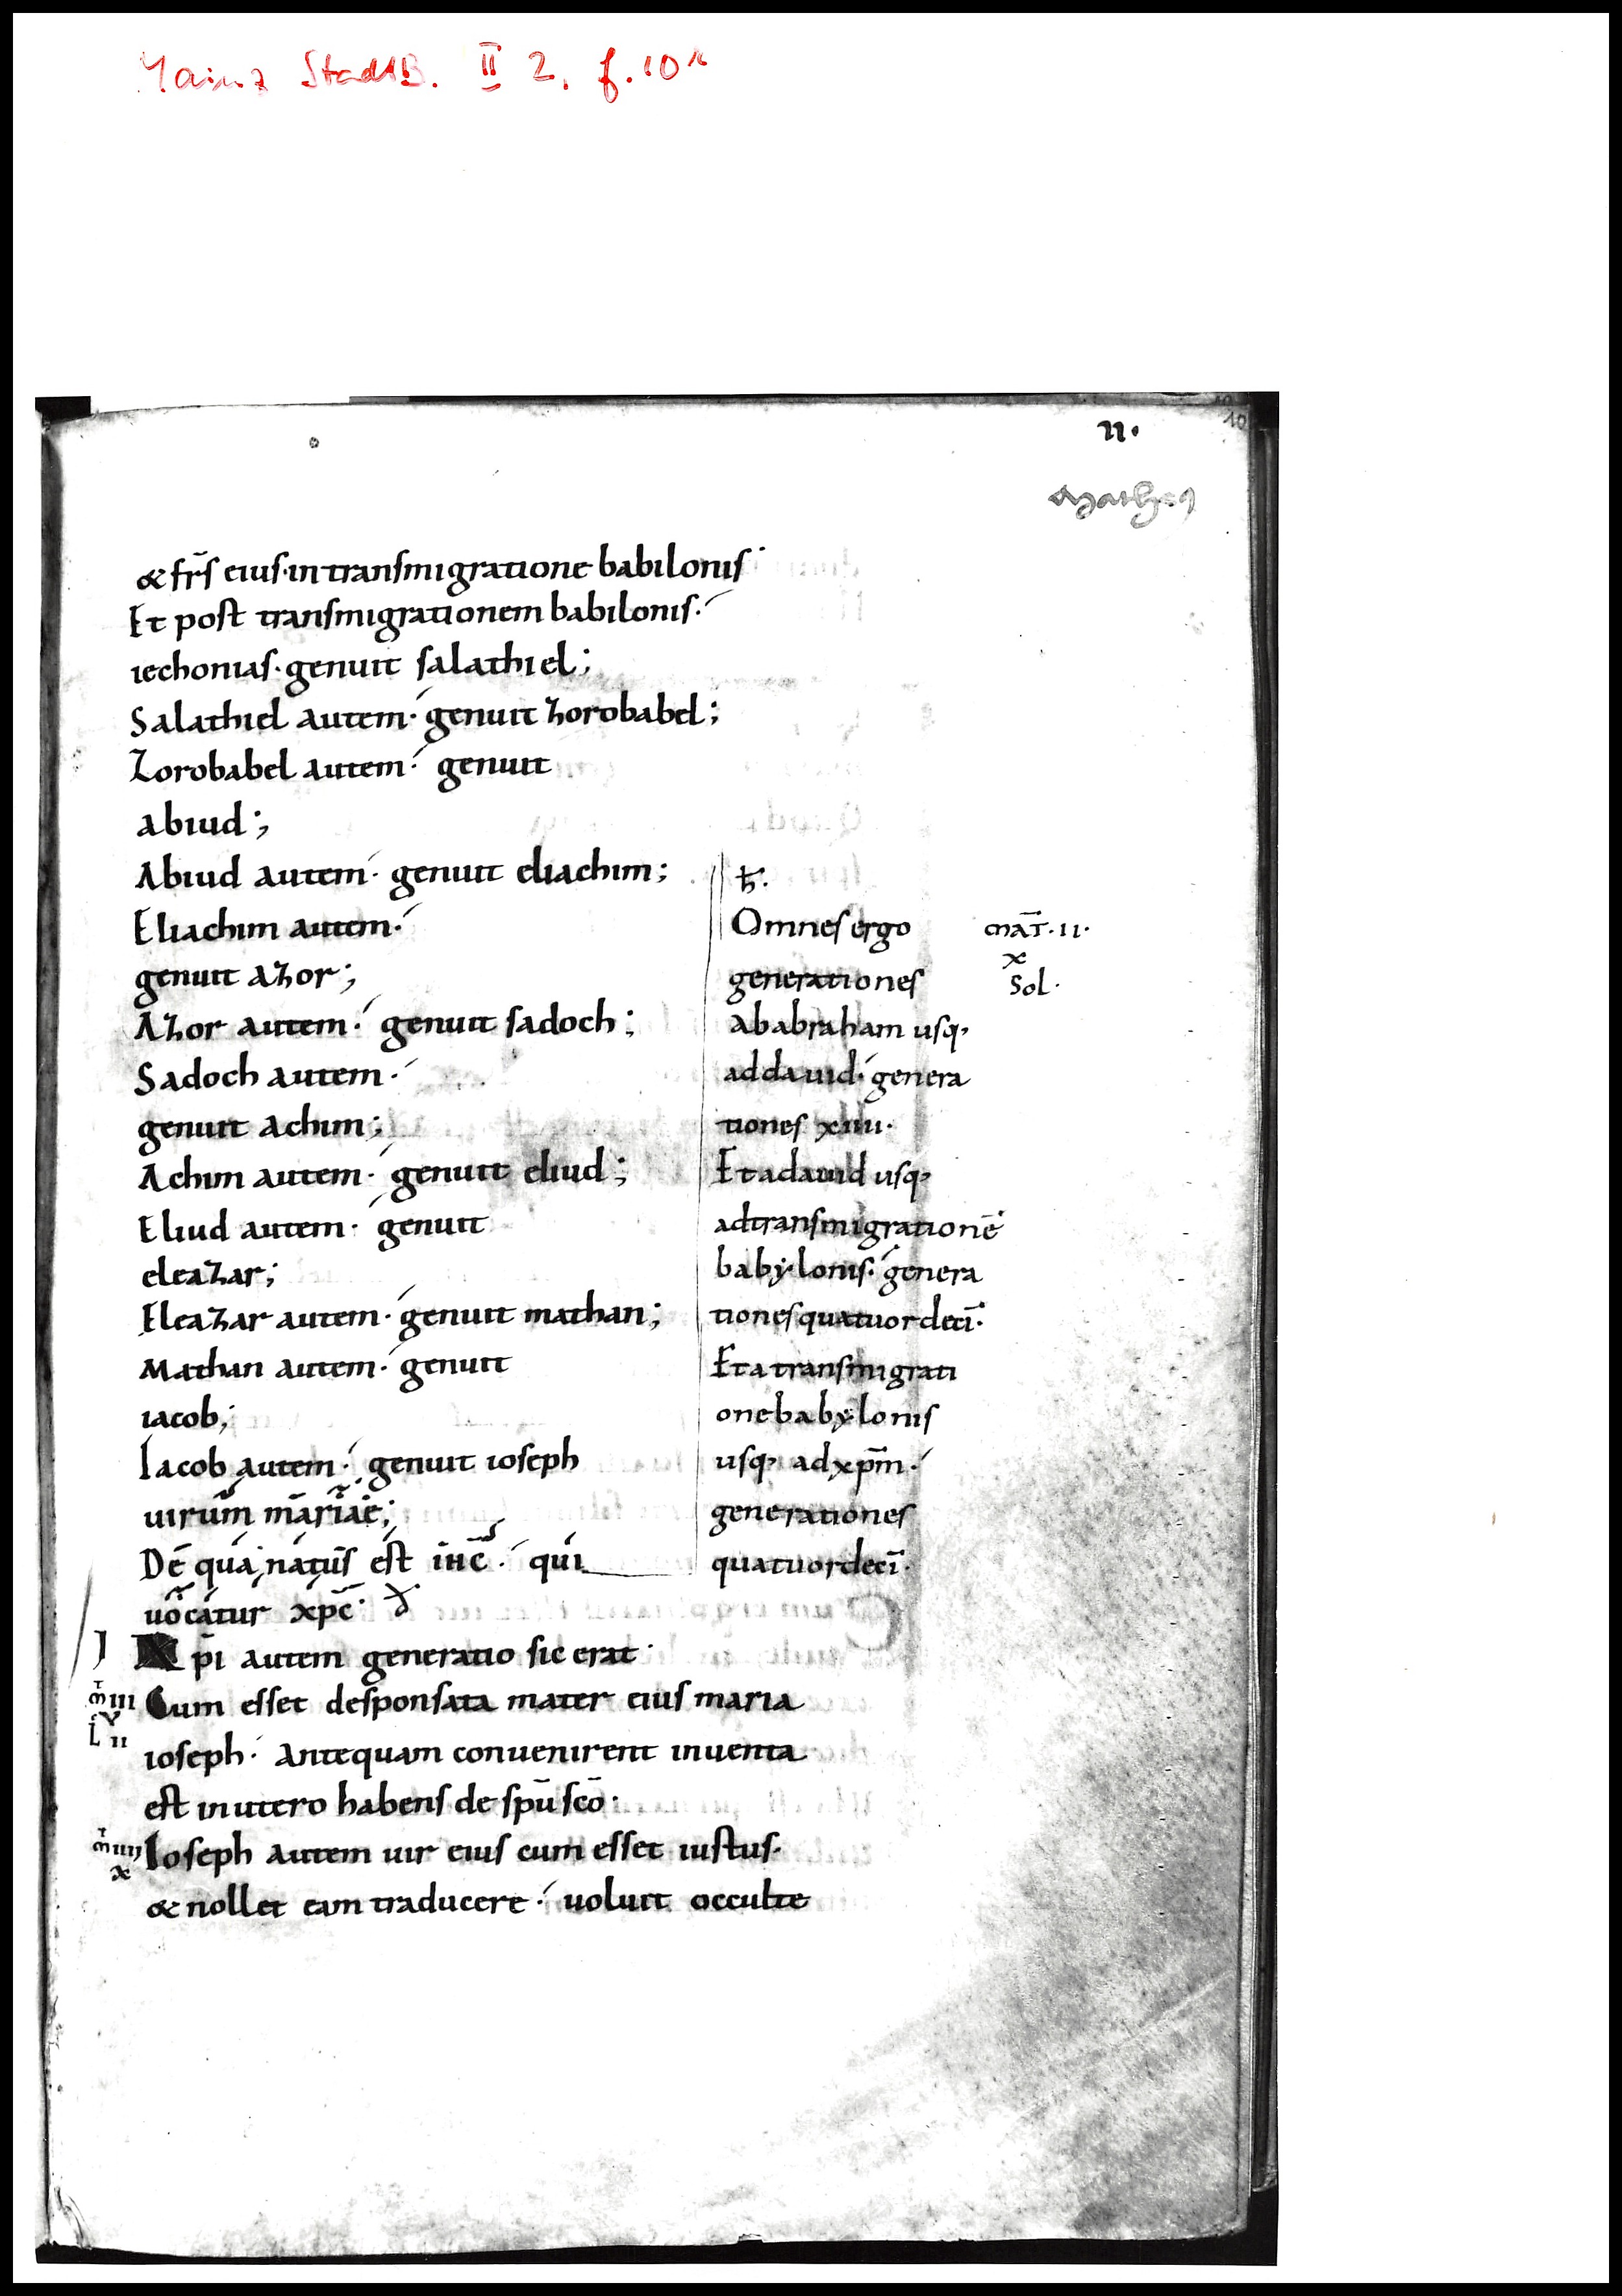 Mainz StadtB. II 2, f. 10r
10
II.
Matheus
& fr̄s eius·in transmigratione babilonis·
Et post transmigrationem babilonis·
iechonias·genuit salathiel;
Salathiel autem· genuit zorobabel;
Zorobabel autem· genuit
abiud;
Abiud autem· genuit eliachim;
Eliachim autem·
genuit azor;
Azor autem· genuit sadoch;
Sadoch autem·
genuit achim;
Achim autem· genuit eliud;
Eliud autem· genuit
eleazar;
Eleazar autem· genuit mathan;
Mathan autem· genuit
iacob;
Iacob autem· genuit ioseph
uirum mariae;
De qua natus est ihc̄· qui
uocatur xpc̄·
ħ.
Omnes ergo
generationes
ab abraham usq;
ad dauid· genera
tiones xiiii·
Et a dauid usq;
ad transmigrationē
babylonis· genera
tiones quatuordecī·
Et a transmigrati
one babylonis
usq; ad xpm̄·
generationes
quatuordecī·
mat̄·II·
x
Sol·
I
Xp̄i autem generatio sic erat·
m̄ III
L II
Cum esset desponsata mater eius maria
ioseph· antequam conuenirent inuenta
est in utero habens de spū scō·
m̄ IIII
x
Ioseph autem uir eius cum esset iustus·
& nollet eam traducere· uoluit occulte